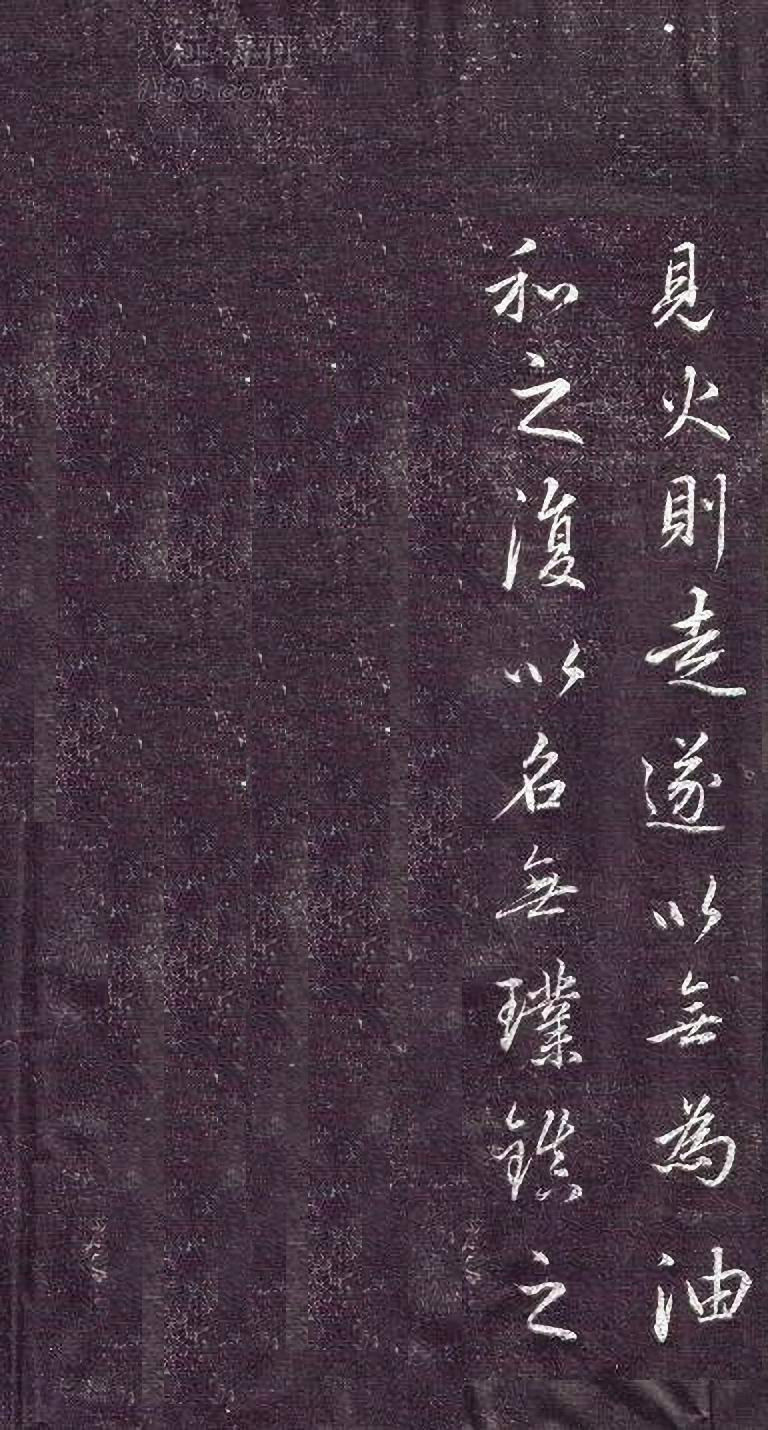 見火則走遂以無為油
和之復以名無璞鎮之